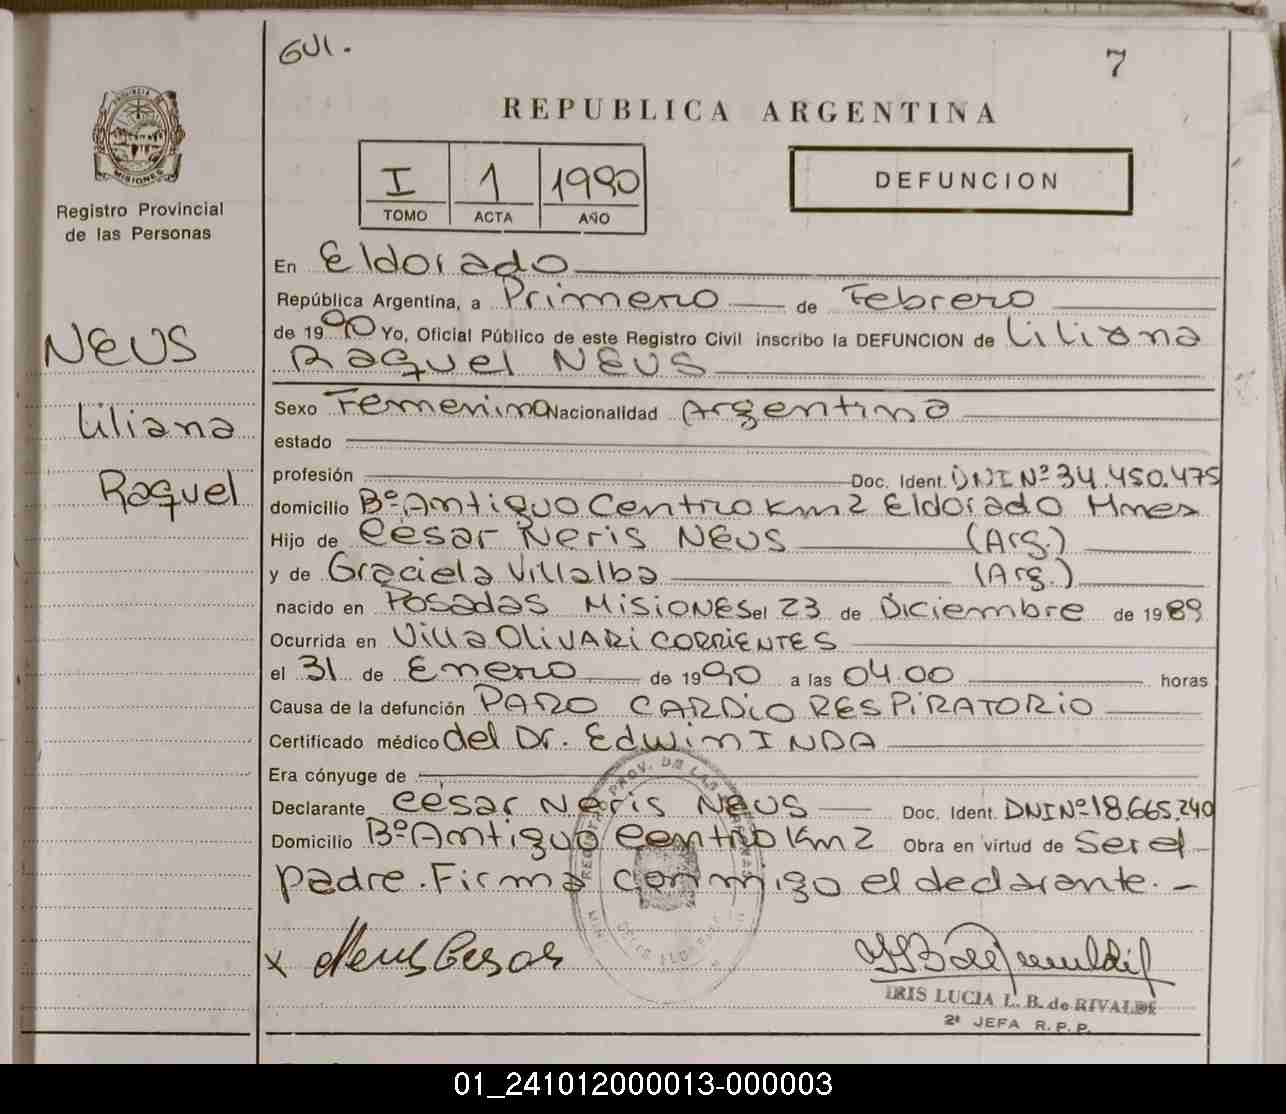 GUI.
7
REPUBLICA ARGENTINA
PROVINCIA DE
MISIONES
Registro Provincial
de las Personas
I 1 1990
TOMO ACTA AÑO
DEFUNCION
En Eldorado
República Argentina, a Primero de Febrero
de 1990 Yo, Oficial Público de este Registro Civil inscribo la DEFUNCION de Liliana
Raquel NEUS
NEUS
Liliana
Raquel
Sexo Femenina Nacionalidad Argentina
estado
profesión Doc. Ident. DNI Nº 34.450.475
domicilio Bº Antiguo Centro Km 2 Eldorado Mnes
Hijo de César Neris NEUS (Arg.)
y de Graciela Villalba (Arg.)
nacido en Posadas MISIONES el 23 de Diciembre de 1989
Ocurrida en Villa OLIVARI CORRIENTES
el 31 de Enero de 1990 a las 04.00 horas
Causa de la defunción PARO CARDIO RESPIRATORIO
Certificado médico del Dr. Edwin INDA
Era cónyuge de
Declarante César Neris NEUS Doc. Ident. DNI Nº 18.665.240
Domicilio Bº Antiguo Centro Km 2 Obra en virtud de Ser el
padre. Firma conmigo el declarante.-
x Neus Cesar
IRIS LUCIA L. B. de RIVALDE
2ª JEFA R. P. P.
01_241012000013-000003